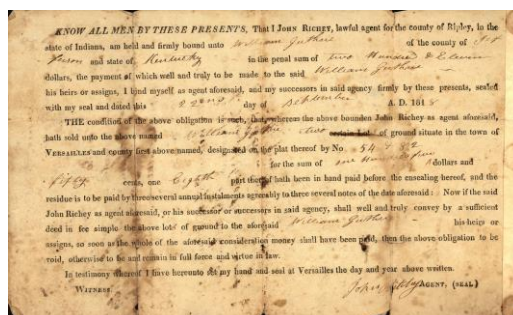 KNOW ALL MEN BY THESE PRESENTS, That I JOHN RICHEY, lawful agent for the county of Ripley, in the
state of Indiana, am held and firmly bound unto William Guthrie of the county of
and state of Kentucky in the penal sum of two Hundred & Eleven
dollars, the payment of which well and truly to be made to the said William Guthrie
his heirs or assigns, I bind myself as agent aforesaid, and my successors in said agency firmly by these presents, sealed
with my seal and dated this 22nd day of September A. D. 181
THE condition of the above obligation is such, that whereas the above bounden John Richey as agent aforesaid,
hath sold unto the above named William Guthrie two certain Lot of ground situate in the town of
VERSAILLES and county first above named, designated on the plat thereof by No 54 & 82
for the sum of one hundred dollars and
fifty cents, one Eighth part thereof hath been in hand paid before the ensealing hereof, and the
residue is to be paid by three several annual instalments agreeably to three several notes of the date aforesaid: Now if the said
John Richey as agent aforesaid, or his successor or successors in said agency, shall well and truly convey by a sufficient
deed in fee simple the above lot of ground to the aforesaid William Guthrie his heirs or
assigns, so soon as the whole of the aforesaid consideration money shall have been paid, then the above obligation to be
void, otherwise to be and remain in full force and virtue in law.
In testimony whereof I have hereunto set my hand and seal at Versailles the day and year above written.
WITNESS. John AGENT, (SEAL)